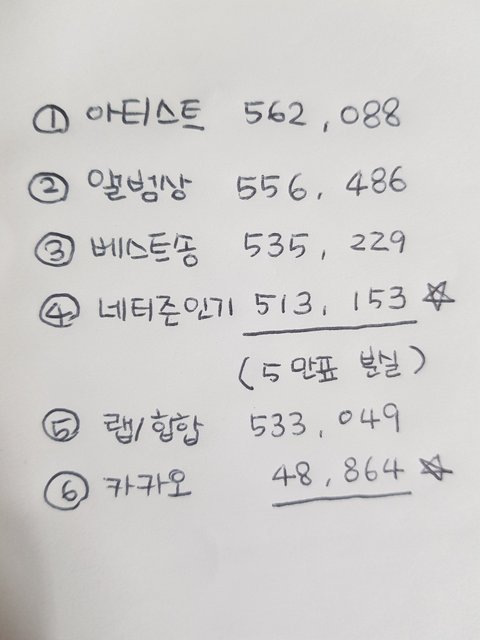 ① 아티스트 562,088
② 앨범상 556,486
③ 베스트송 535,229
④ 네티즌인기 513,153 ☆
(5만표 분실)
⑤ 랩/합합 533,049
⑥ 카카오 48,864 ☆